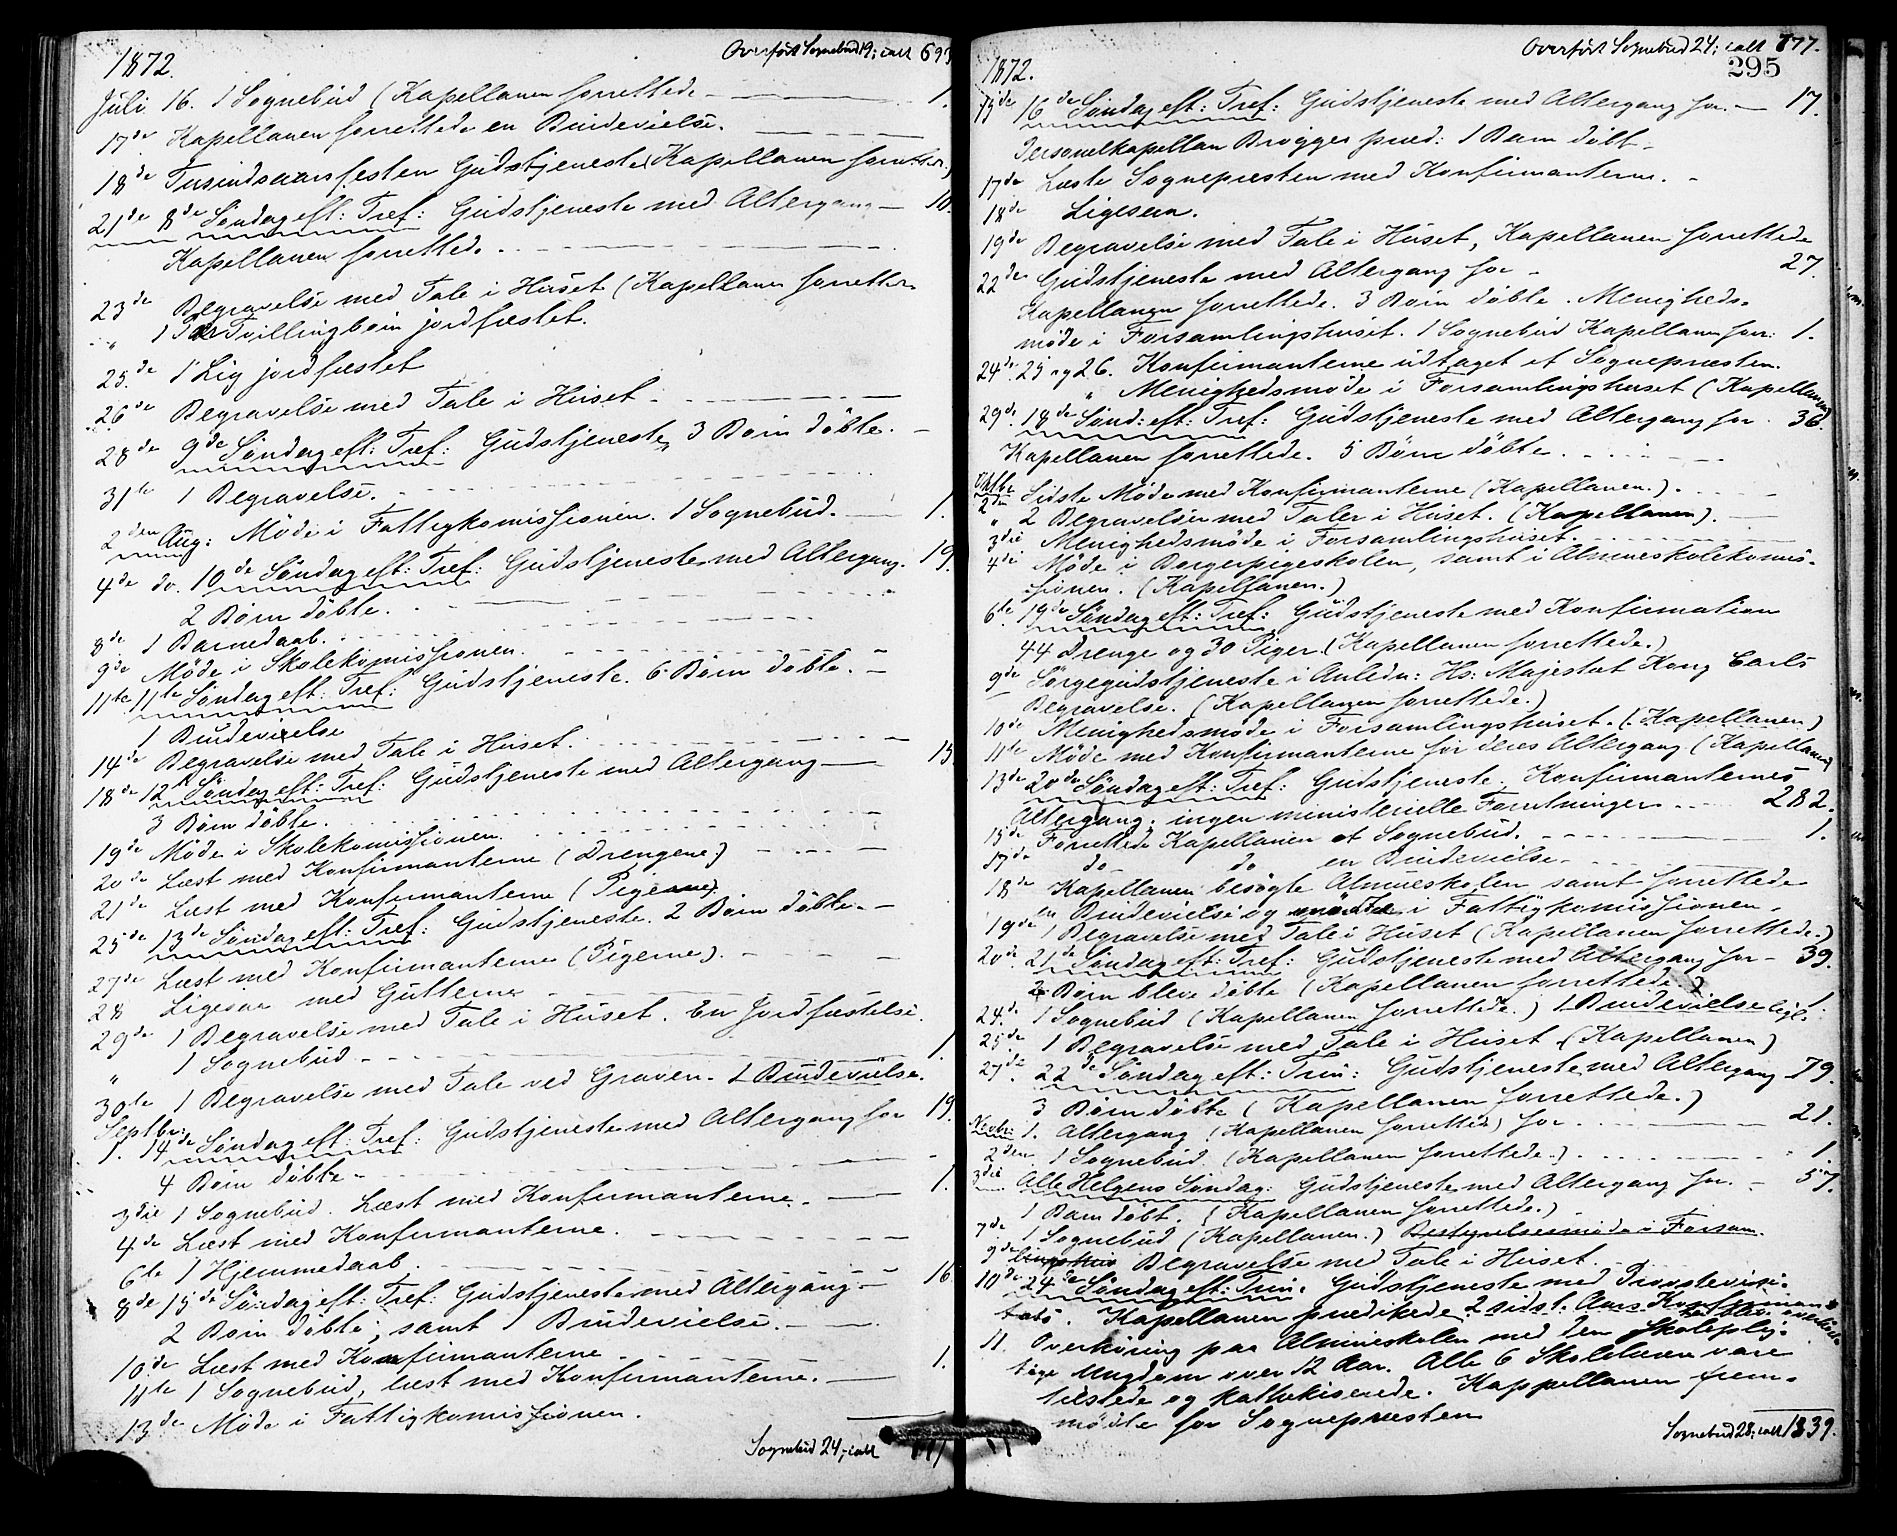 Overført Sognebud 19; ialt 693
1872.
Juli 16. 1 Sognebud (Kapellanen forrettede - 1.
17de Kapellanen forrettede en Brudevielse.
18de Tusindaarsfesten Gudstjeneste (Kapellanen forretter)
21de 8de Søndag eft: Tref: Gudstjeneste med Altergang - 10.
Kapellanen forretted.
23de Begravelse med Tale i Huset (Kapellanen forretter
" 1 Par Tvillingbørn jordfæstet.
25de 1 Lig jordfæstet
26de Begravelse med Tale i Huset
28de 9de Søndag eft: Tref: Gudstjeneste, 3 Børn døbte. -
31te 1 Begravelse.
2den Aug: Møde i Fattigkomissionen. 1 Sognebud. - 1.
4de do. 10de Søndag eft: Tref: Gudstjeneste med Altergang. 19.
2 Børn døbte.
8de 1 Barnedaab.
9de Møde i Skolekomissionen.
11te 11te Søndag eft: Tref: Gudstjeneste. 6 Børn døbte. -
1 Brudevielse
14de Begravelse med Tale i Huset.
18de 12te Søndag eft: Tref: Gudstjeneste med Altergang - 15.
3 Børn døbte.
19de Møde i Skolekomissionen.
20de Læst med Konfirmanterne (Drengene)
21de Læst med Konfirmanterne (Pigerne)
25de 13de Søndag eft: Tref: Gudstjeneste. 2 Børn døbte. -
27de Læst med Konfirmanterne (Pigerne).
28 Ligesaa med Gutterne
29de 1 Begravelse med Tale i Huset. En Jordfæstelse.
" 1 Sognebud - 1
30te 1 Begravelse med Tale ved Graven. 1 Brudevielse.
Septbr:
1. 14de Søndag eft: Tref: Gudstjeneste med Altergang for 19.
4 Børn døbte -
3die 1 Sognebud. Læst med Konfirmanterne. - 1.
4de Læst med Konfirmanterne.
6te 1 Hjemmedaab.
8de 15de Søndag eft: Tref: Gudstjeneste med Altergang - 16.
2 Børn døbte, samt 1 Brudevielse.
10de Læst med Konfirmanterne
11te 1 Sognebud, læst med Konfirmanterne. - 1.
13de Møde i Fattigkomissionen.
Sognebud 24, ialt 777
Overført Sognebud 24; ialt 777.
295
1872.
15de 16de Søndag eft: Tref: Gudstjeneste med Altergang for. - 17.
Personelkapellan Brøgger præd: 1 Barn døbt -
17de Læste Sognepræsten med Konfirmanterne. -
18de Ligesaa.
19de Begravelse med Tale i Huset, Kapellanen forrettede
22de Gudstjeneste med Altergang for - 27.
Kapellanen forrettede. 3 Børn døbte. Menigheds-
møde i Forsamlingshuset. 1 Sognebud Kapellanen forr: 1.
24de 25 og 26. Konfirmanterne udtaget af Sognepræsten.
" Menighedsmøde i Forsamlingshuset (Kapellanen)
29de 18de Sønd: eft: Tref: Gudstjeneste med Altergang for 36.
Kapellanen forrettede. 5 Børn døbte.
Oktbr
2den Sidste Møde med Konfirmanterne (Kapellanen.)
" 2 Begravelser med Taler i Huset. (Kapellanen).
3die Menighedsmøde i Forsamlingshuset.
4de Møde i Borgerpigeskolen, samt i Almueskolekomis-
sionen. (Kapellanen.)
6te 19de Søndag eft: Tref: Gudstjeneste med Konfirmation
44 Drenge og 30 Piger (Kapellanen forrettede.)
9de Sørgegudstjeneste i Anledn: Hs: Majestæt Kong Carls
Begravelse. (Kapellanen forrettede.)
10de Menighedsmøde i Forsamlingshuset. (Kapellanen)
11te Møde med Konfirmanterne for deres Altergang (Kapellanen)
13de 20de Søndag eft: Tref: Gudstjeneste. Konfirmanternes
Altergang. ingen ministerielle Forretninger. 282.
15de Forrettede Kapellanen et Sognebud. 1.
17de do do en Brudevielse.
18de Kapellanen besøgte Almueskolen samt forrettede
en Brudevielse og mødte i Fattigkomissionen.
19de 1 Begravelse med Tale i Huset (Kapellanen forrettede.)
20de 21de Søndag eft: Tref: Gudstjeneste med Altergang for - 39.
2 Børn bleve døbte (Kapellanen forrettede.)
24de 1 Sognebud (Kapellanen forrettede.) 1 Brudevielse ligl: 1
25de 1 Begravelse med Tale i Huset (Kapellanen)
27de 22de Søndag eft: Trin: Gudstjeneste med Altergang 79.
3 Børn døbte (Kapellanen forrettede.)
Novbr: 1. Altergang (Kapellanen forrettede) for 21.
2den 1 Sognebud. (Kapellanen forrettede.) 1
3die Alle Helgens Søndag: Gudstjeneste med Altergang for. - 57.
1 Barn døbt. (Kapellanen forrettede.)
7de 1 Sognebud (Kapellanen.) Bestyrelsesmøde i Forsam-
9de lingshus Begravelse med Tale i Huset.
10de 24de Søndag eft: Trin: Gudstjeneste med Provstevisi-
tats. Kapellanen prædikede 2 sidst: Aars Konfirman
11. Overhøring paa Almueskolen med den skoleplig-
tige Ungdom over 12 Aar. Alle 6 Skolelærere vare
tilstede og kathekiserede. Kappellanen frem-
mødte for Sognepræsten
Sognebud 28; ialt 1339.